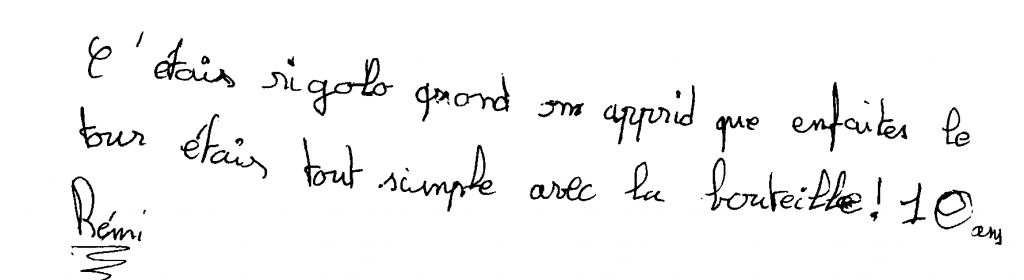 C'étais rigolo quand on apprid que enfaites le
tour étais tout simple avec la bouteille! 10 ans
Rémi